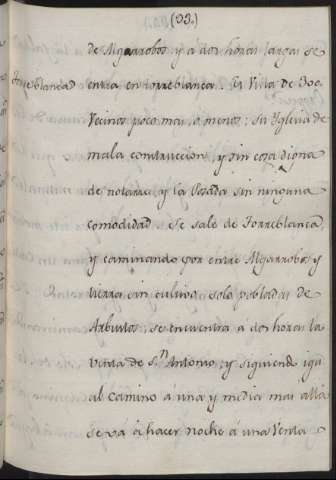 (33.)
de Algarrobos y á dos horas largas se
Torreblanca} entra en Torreblanca. Es Villa de 300.
Vecinos poco mas, o menos: su Yglesia de
mala construccion, y sin cosa digna
de notarse; y la Posada sin ninguna
comodidad. Se sale de Torreblanca,
y caminando por entre Algarrobos, y
tierras sin cultivo, solo pobladas de
Arbustos, se encuentra a dos horas la
venta de S.n Antonio; y siguiendo igu
al camino á una y media mas alla
se vá á hacer noche á una Venta